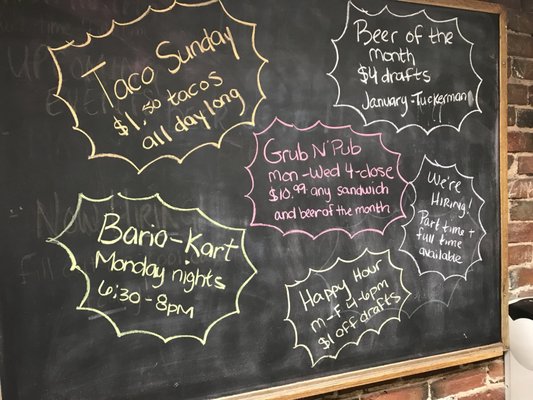 Taco Sunday
$1.50 tacos
all day long
Beer of the
month
$4 drafts
January-Tuckerman
Grub N' Pub
mon-Wed 4-close
$10.99 any sandwich
and beer of the month
We're
Hiring!
Part time +
full time
available
Bario-Kart
Monday nights
6:30-8pm
Happy Hour
m-F 4-6pm
$1 off drafts